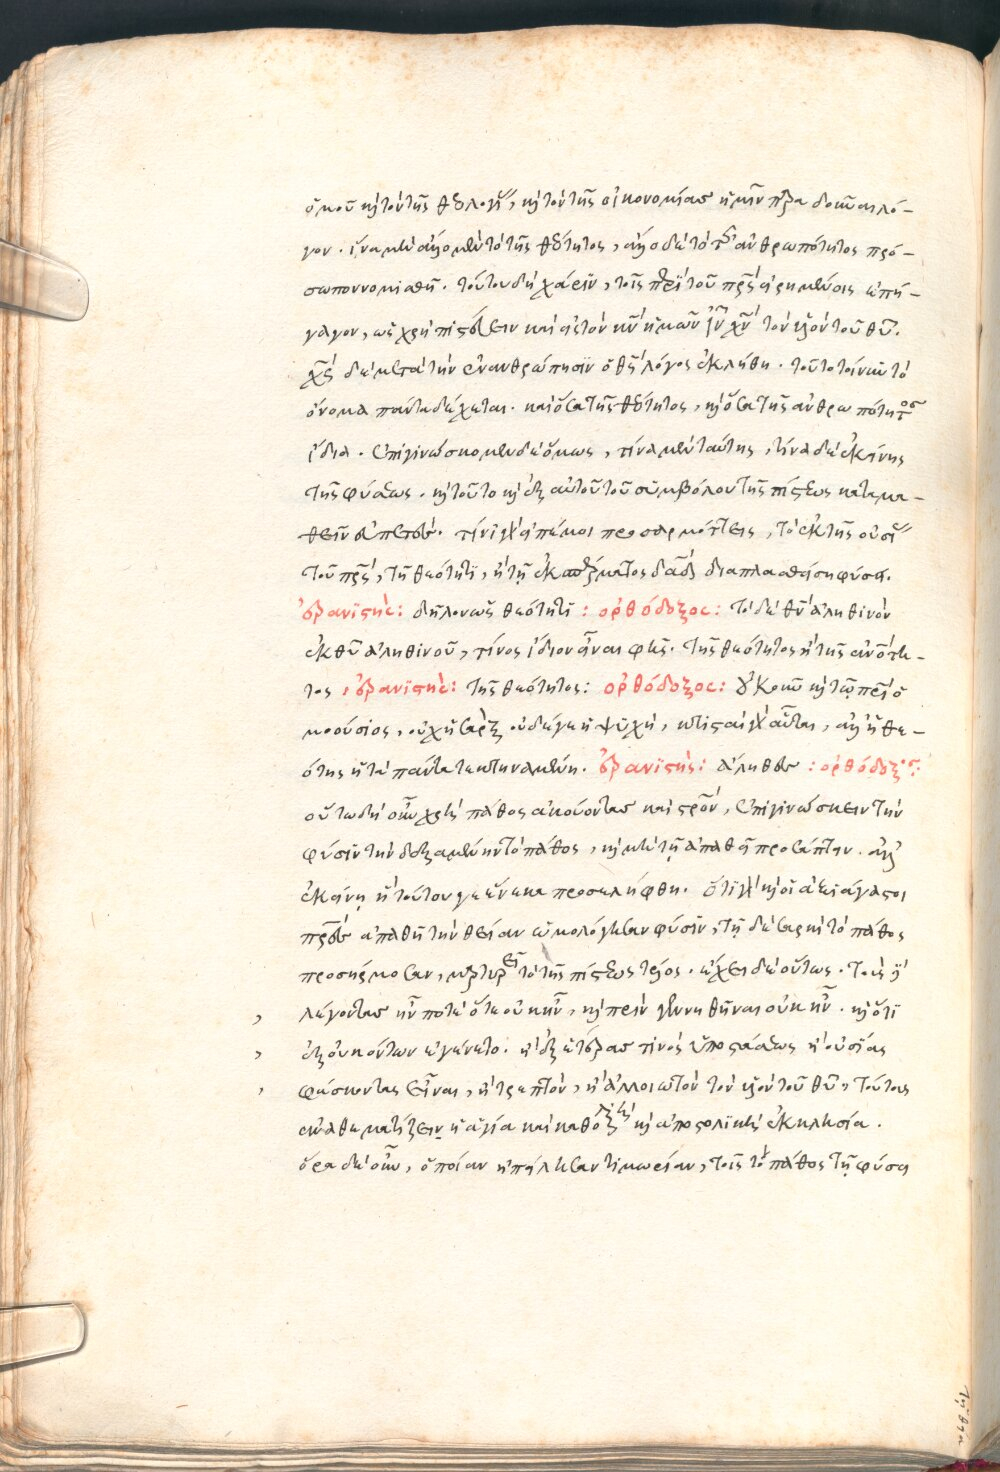 ὁμοῦ κὶ τὸν τῆς θεολογί, κὶ τὸν τῆς οἰκονομίασ ἡμῖν παραδοῦναι λό-
γον. ἵνα μὴ ἄλλο μὲν τὸ τῆς θεότητος, ἄλλο δὲ τὸ τῆς ἀνθρωπότητος πρό-
σωπον νομισθῇ. τούτου δὴ χάριν, τοῖς περὶ τοῦ πρ̅ς εἰρημένοις ἐπή-
γαγον, ὡς χρὴ πιστεύειν καὶ εἰς τὸν κ̅ν ἡμῶν ι̅ν χ̅ν τὸν υἱὸν τοῦ θ̅υ.
χ̅ς δὲ μετὰ τὴν ἐνανθρώπησιν ὁ θ̅ς λόγος ἐκλήθη. τοῦτο τοίνυν τὸ
ὄνομα πάντα δέχεται. καὶ ὅσα τῆς θεότητος, κὶ ὅσα τῆς ἀνθρωπότητος
ἴδια. ἐπιγινώσκομεν δὲ ὅμως, τίνα μὲν ταύτης, τίνα δὲ ἐκείνης
τῆς φύσεως. κὶ τοῦτο κὶ ἐξ αὐτοῦ τοῦ συμβόλου τῆς πίστεως καταμα-
θεῖν εὐπετὲς. τίνι γὰρ εἰπέ μοι προσαρμόττεις, τὸ ἐκ τῆς οὐσί
τοῦ πρ̅ς, τῇ θεότητι, ἢ τῇ ἐκ σπέρματος δα̅δ διαπλασθείσῃ φύσει.
ἐρανιστής: δῆλον ὡς θεότητι: ὀρθόδοξος: τὸ δὲ θ̅ν ἀληθινὸν
ἐκ θ̅υ ἀληθινοῦ, τίνος ἴδιον εἶναι φῄς. τῆς θεότητος ἢ τῆς ἀν̅ό̅τη-
τος, ἐρανιστής: τῆς θεότητος: ὀρθόδοξος: οὐκοῦν κὶ τῷ πρ̅ὶ ὁ
μοούσιος, οὐχ ἡ σὰρξ οὐδέ γε ἡ ψυχή, κτισταὶ γὰρ αὗται, ἀλλ' ἡ θε-
ότης ἡ τὰ πάντα τεκτηναμένη. ἐρανιστής: ἀληθὲς: ὀρθόδοξος:
οὕτω δὴ οὖν χρὴ πάθος ἀκούοντασ καὶ στ̅ρον, ἐπιγινώσκειν τὴν
φύσιν τὴν δεξαμένην τὸ πάθος, κὶ μὴ τῇ ἀπαθεῖ προσάπτειν. ἀλλ'
ἐκείνῃ ἣ τούτου γε ἕνεκα προσελήφθη. ὅτι γὰρ κὶ οἱ ἀξιάγαστοι
πρ̅ες ἀπαθῆ τὴν θείαν ὡμολόγησαν φύσιν, τῇ δὲ σαρκὶ τὸ πάθος
προσήρμοσαν, μαρτυρεῖ τὸ τῆς πίστεως τέλος. ἔχει δὲ οὕτως. τοὺς δὲ
λέγοντασ ἦν ποτὲ ὅτε οὐκ ἦν, κὶ πρὶν γεννηθῆναι οὐκ ἦν. κὶ ὅτι
ἐξ οὐκ ὄντων ἐγένετο. ἢ ἐξ ἑτέρασ τινὸς ὑποστάσεως ἢ οὐσίας
φάσκοντας εἶναι, ἢ τρεπτὸν, ἢ ἀλλοιωτὸν τὸν υἱὸν τοῦ θ̅υ, τούτους
ἀναθεματίζει ἡ ἁγία καὶ καθολικὴ κὶ ἀποστολικὴ ἐκκλησία.
ὅρα δὲ οὖν, ὁποίαν ἠπείλησαν τιμωρίαν, τοῖς τὸ πάθος τῇ φύσει